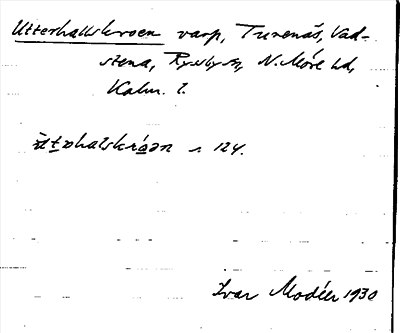 Utterhallskroen varp, Turenäs, Vad-
stena, Ryssby sn, N. Möre hd,
Kalm. l.
s. 124.
Ivar Modéer 1930